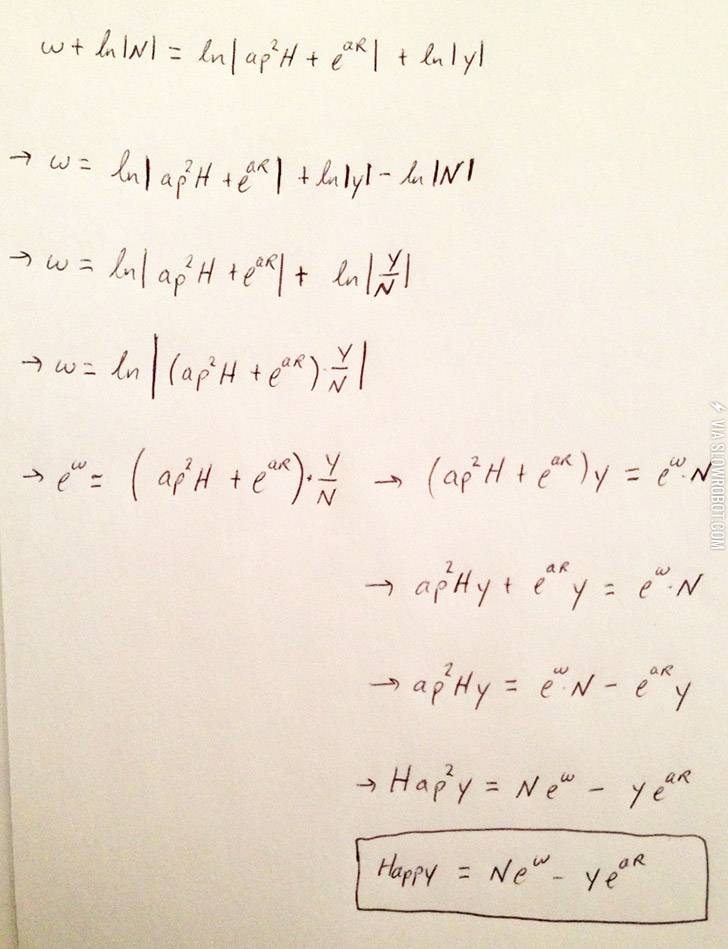 ω + ln|N| = ln|ap²H + e^{aR}| + ln|y|
→ ω = ln|ap²H + e^{aR}| + ln|y| - ln|N|
→ ω = ln|ap²H + e^{aR}| + ln|Y/N|
→ ω = ln|(ap²H + e^{aR})·Y/N|
→ e^ω = (ap²H + e^{aR})·Y/N → (ap²H + e^{aR})y = e^ω·N
→ ap²Hy + e^{aR}y = e^ω·N
→ ap²Hy = e^ω·N - e^{aR}y
→ Hap²y = Ne^ω - ye^{aR}
Happy = Ne^ω - ye^{aR}
VIA SLOWROBOT.COM